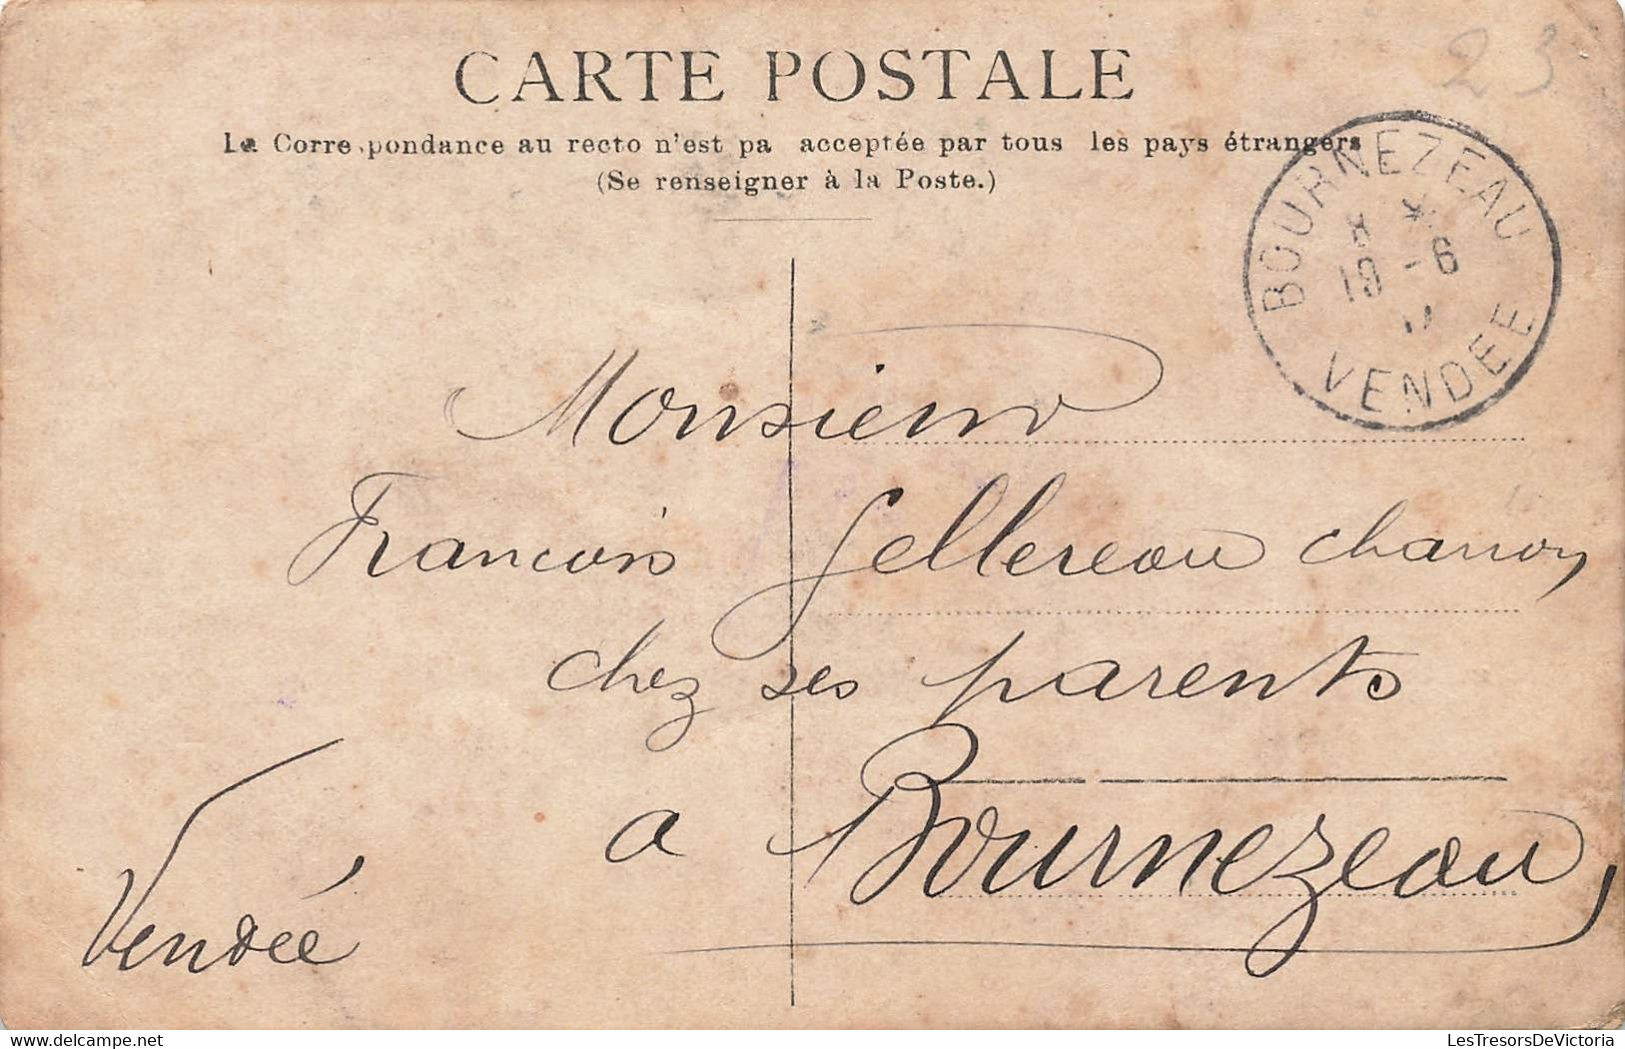 23
CARTE POSTALE
La Correspondance au recto n'est pa acceptée par tous les pays étrangers
(Se renseigner à la Poste.)
BOURNEZEAU
8 *
19 -6
VENDEE
Monsieur
Francois Gellereau charron
chez ses parents
a Bournezeau,
Vendée
LesTresorsDeVictoria